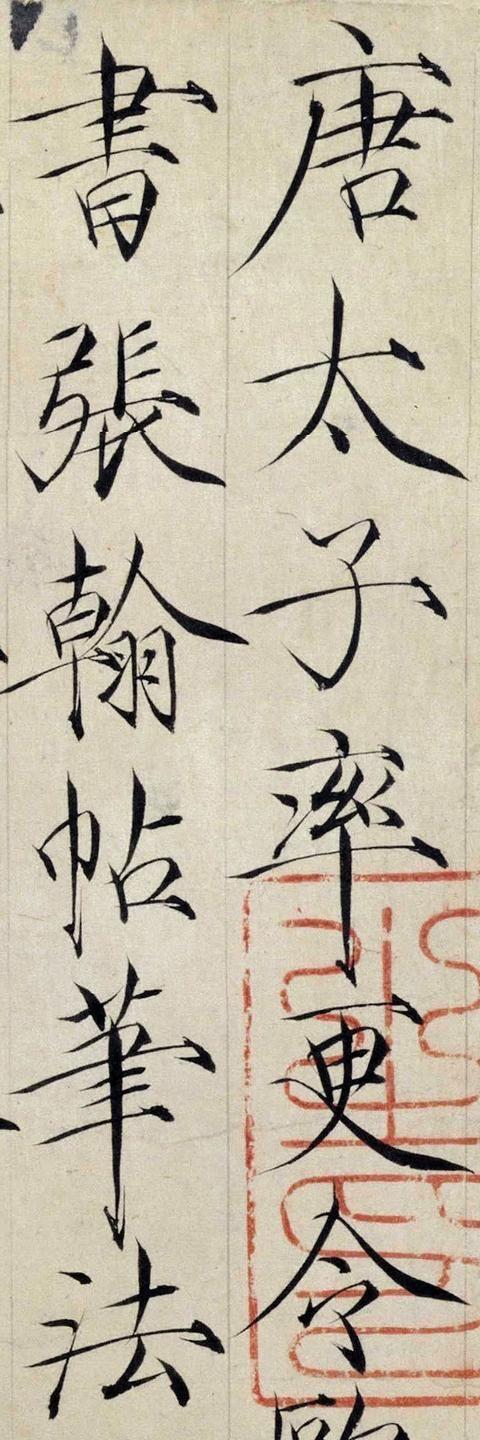 唐太子率更令
書張翰帖筆法